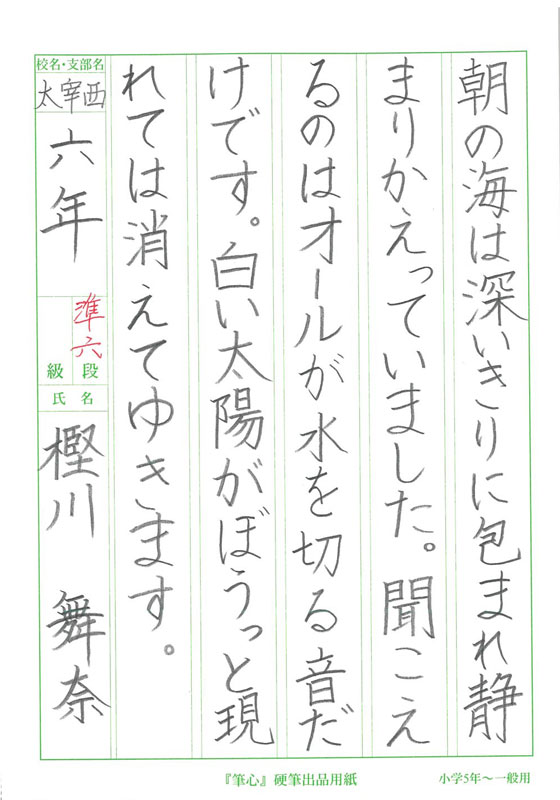 朝の海は深いきりに包まれ静
まりかえっていました。聞こえ
るのはオールが水を切る音だ
けです。白い太陽がぼうっと現
れては消えてゆきます。
校名・支部名
太宰西
六年
準六
段
級
氏名
樫川 舞奈
『筆心』硬筆出品用紙
小学5年〜一般用